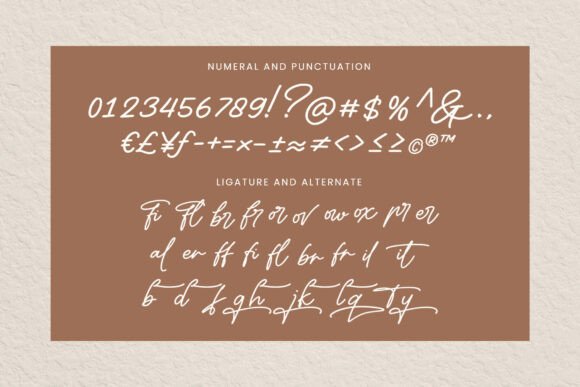 NUMERAL AND PUNCTUATION
0123456789!?@#$%^&.,
€£¥ƒ-+=×-±≈≠<>≤≥©®™
LIGATURE AND ALTERNATE
fi fl br fr or ov ow ox pr er
al er ff fi fl br fr il it
b d f g h j k l q t y